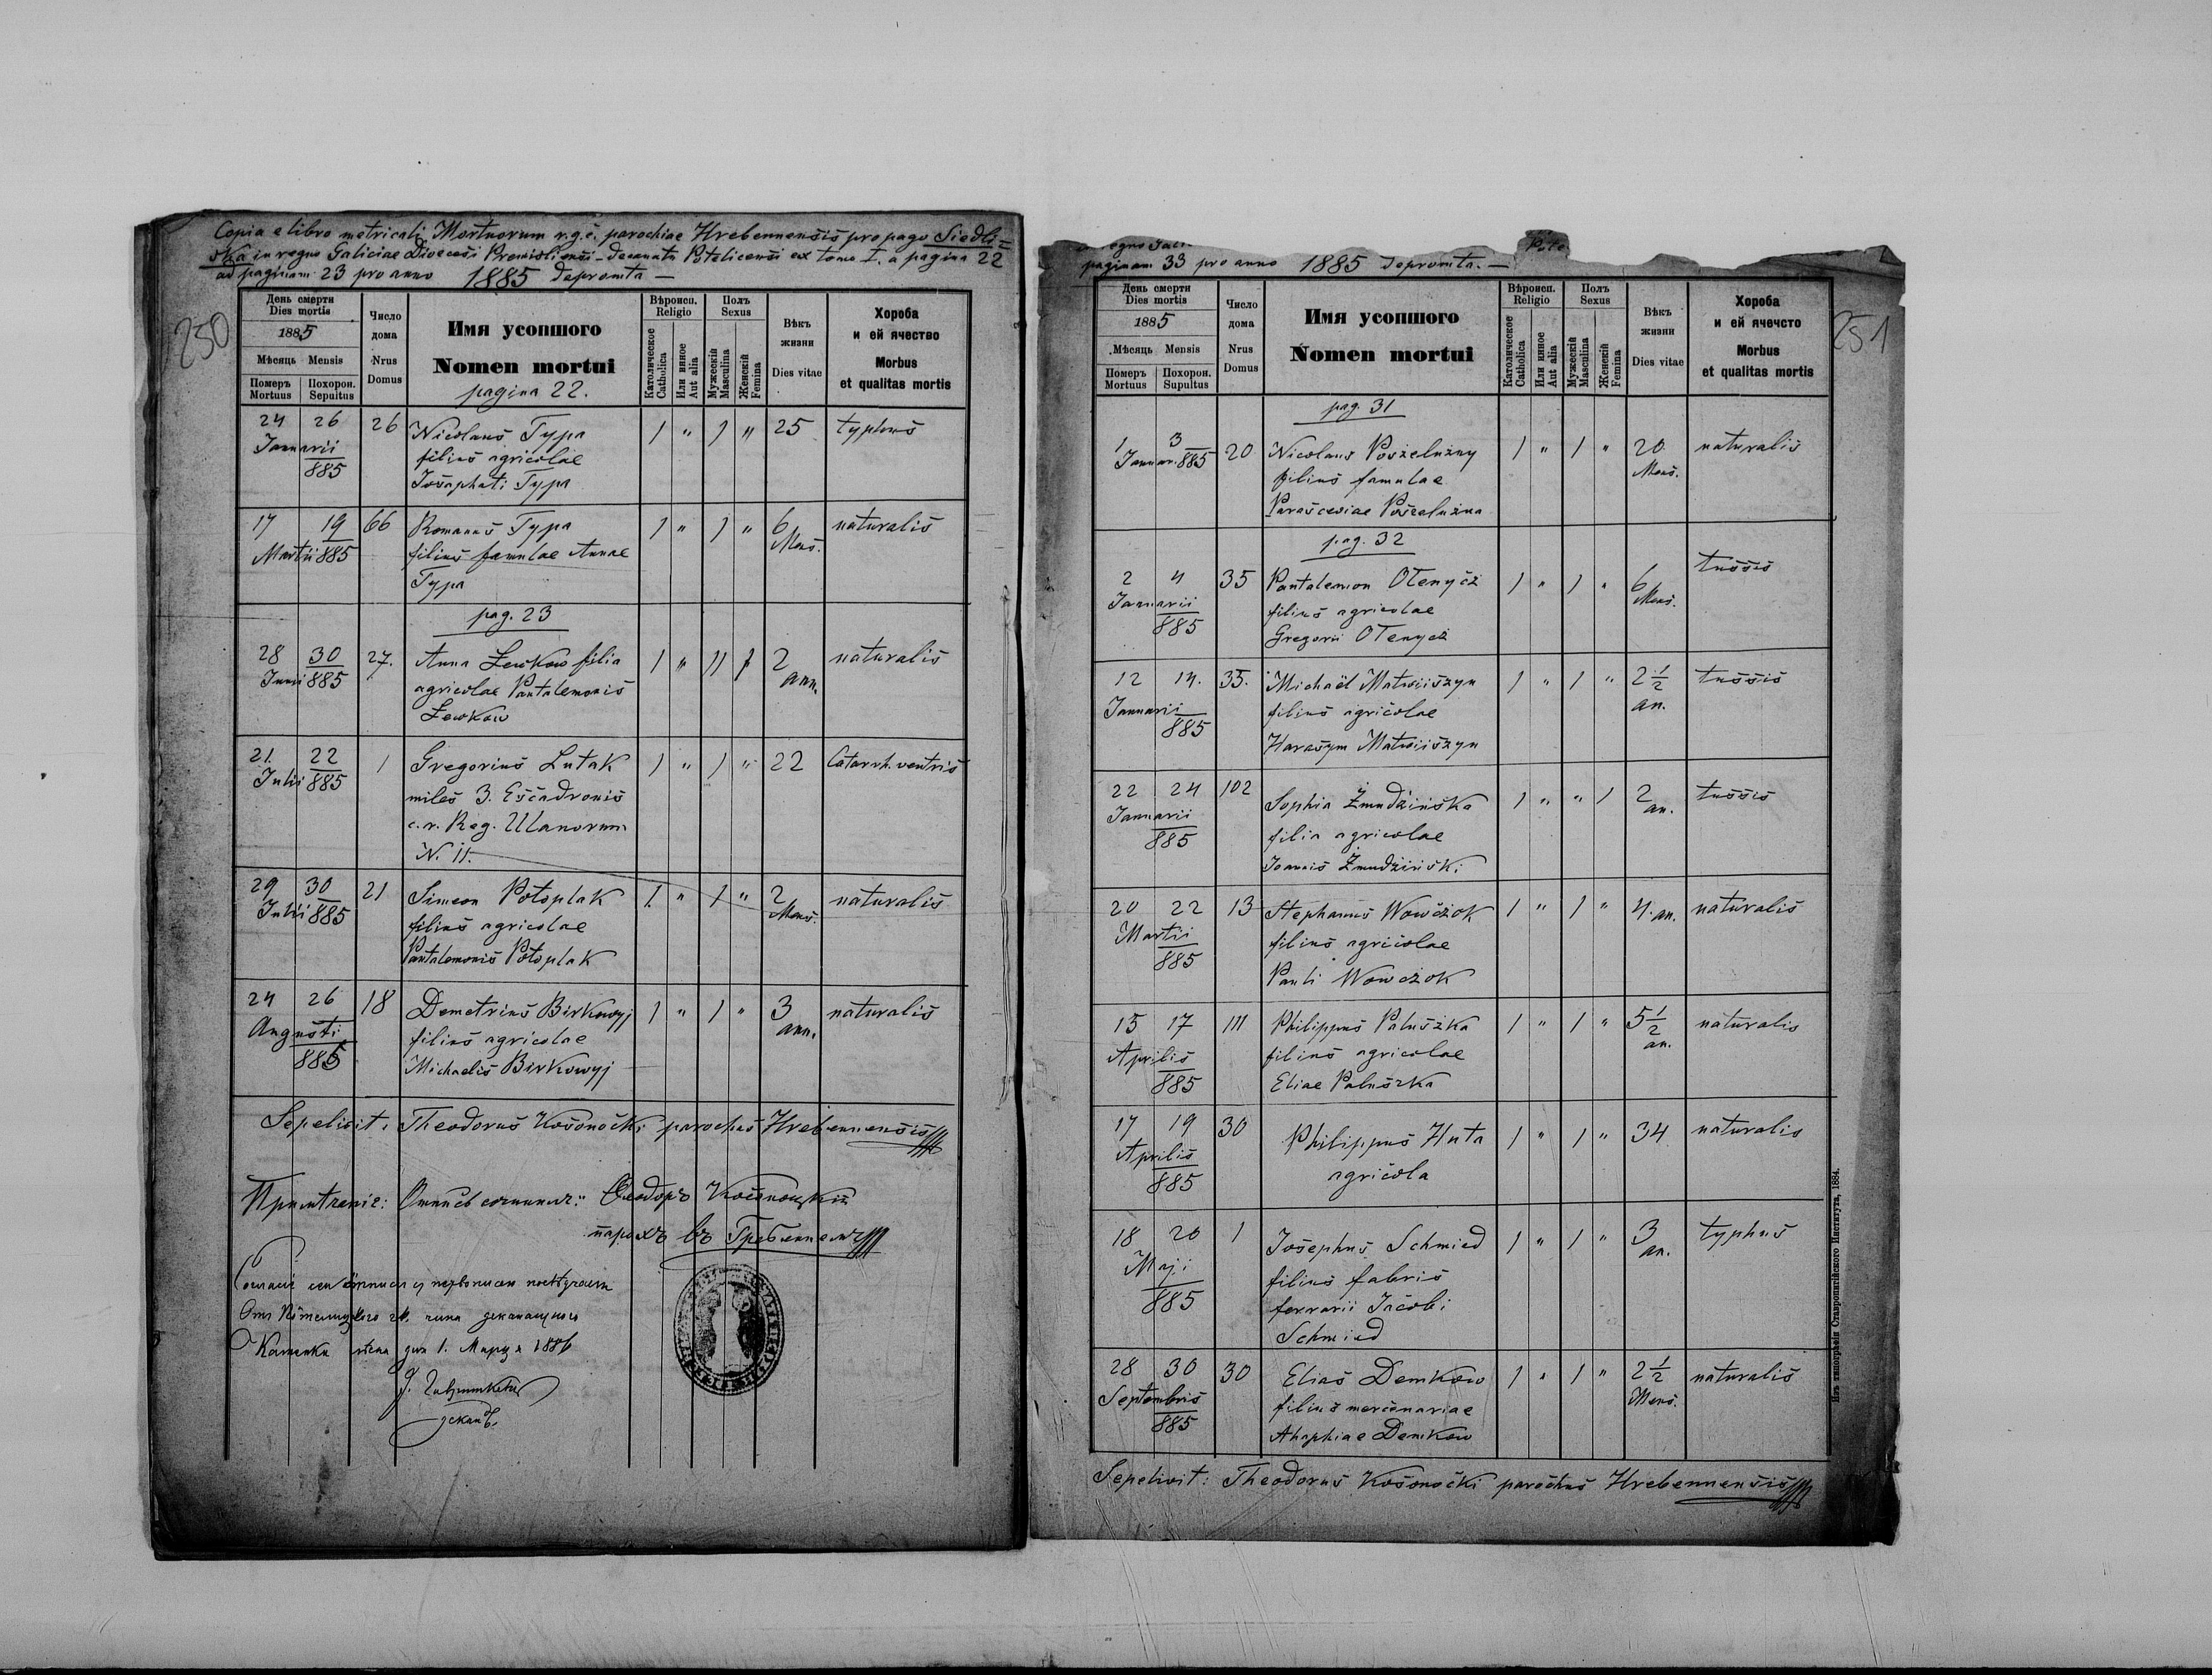 Copia e libro metricali Mortuorum r.g.c. parochiae Hrebennensis pro pago Siedli=
ska in regno Galiciae Dioecesi Premisliensi - Decanatu Potelicensi ex tomo I. a pagina 22
ad paginam 23 pro anno 1885 depromta —
250
День смерти
Dies mortis
1885
Мѣсяць Mensis
Померъ Mortuus
Похорон. Sepultus
Число дома
Nrus Domus
Имя усопшого
Nomen mortui
pagina 22.
Вѣроисп. Religio
Католическое Catholica
Или инное Aut alia
Полъ Sexus
Мужескій Masculina
Женскій Femina
Вѣкъ жизни
Dies vitae
Хороба
и ей ячество
Morbus
et qualitas mortis
24 26 26 Nicolaus Typa 1 " 1 " 25 typhus
Januarii filius agricolae
885 Josaphati Typa
17 19 66 Romanus Typa 1 " 1 " 6 naturalis
Martii 885 filius famulae Annae Mens.
Typa
pag. 23
28 30 27. Anna Lewkow filia 1 " 11 1 2 naturalis
Junii 885 agricolae Pantalemonis ann.
Lewkow
21. 22 1 Gregorius Lutak 1 " 1 " 22 Catarrh. ventris
Julii 885 miles 3. Escadronis
c.r. Reg. Ulanorum
N. 11.
29 30 21 Simeon Potoplak 1. " 1 " 2 naturalis
Julii 885 filius agricolae Mens.
Pantalemonis Potoplak
24 26 18 Demetrius Birkowyj 1 " 1 " 3 naturalis
Augusti filius agricolae ann.
885 Michaelis Birkowyj
Sepelivit: Theodorus Kosonocki parochus Hrebennensis
Феодоръ Косоноцкій
парохъ въ Гребенном
Каменка дня 1. Марця 1886
деканъ.
paginam 33 pro anno 1885 depromta. —
251
День смерти
Dies mortis
1885
Мѣсяць Mensis
Померъ Mortuus
Похорон. Supultus
Число дома
Nrus Domus
Имя усопшого
Nomen mortui
Вѣроисп. Religio
Католическое Catholica
Или инное Aut alia
Полъ Sexus
Мужескій Masculina
Женскій Femina
Вѣкъ жизни
Dies vitae
Хороба
и ей ячечсто
Morbus
et qualitas mortis
pag. 31
1 3 20 Nicolaus Poszelużny 1 " 1 " 20 naturalis
Januar. 885 filius famulae Mens.
Parasceviae Poszelużna
pag. 32
2 4 35 Pantalemon Otenycz 1 " 1 " 6 tussis
Januarii filius agricolae Mens.
885 Gregorii Otenycz
12 14. 35. Michaël Matwiiszyn 1 " 1 " 2 1/2 tussis
Januarii filius agricolae an.
885 Harasym Matwiiszyn
22 24 102 Sophia Żmudzińska 1 " " 1 2 tussis
Januarii filia agricolae an.
885 Joannis Żmudziński
20 22 13 Stephanus Wowczok 1 " 1 " 4. an. naturalis
Martii filius agricolae
885 Pauli Wowczok
15 17 111 Philippus Paluszka 1 " 1 " 5 1/2 naturalis
Aprilis filius agricolae an.
885 Eliae Paluszka
17 19 30 Philippus Huta 1 " 1 " 34 naturalis
Aprilis agricola
885
18 20 1 Josephus Schmied 1 " 1 " 3 typhus
Maji filius fabris an.
885 ferrarii Jacobi
Schmied
28 30 30 Elias Demkow 1 " 1 " 2 1/2 naturalis
Septembris filius mercenariae Mens.
885 Ahaphiae Demkow
Sepelivit: Theodorus Kosonocki parochus Hrebennensis
Изъ типографіи Ставропигійского Института, 1884.